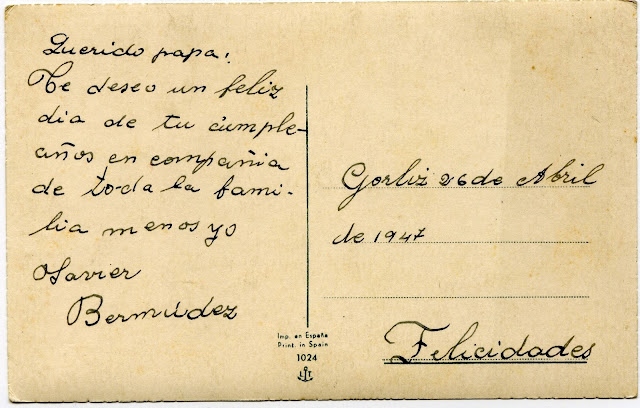 Querido papa:
Te deseo un feliz
dia de tu cumple-
años en compañia
de toda la fami-
lia menos yo
Javier
Bermúdez
Gorliz 26 de Abril
de 1947
Felicidades
Imp. en España
Print. in Spain
1024